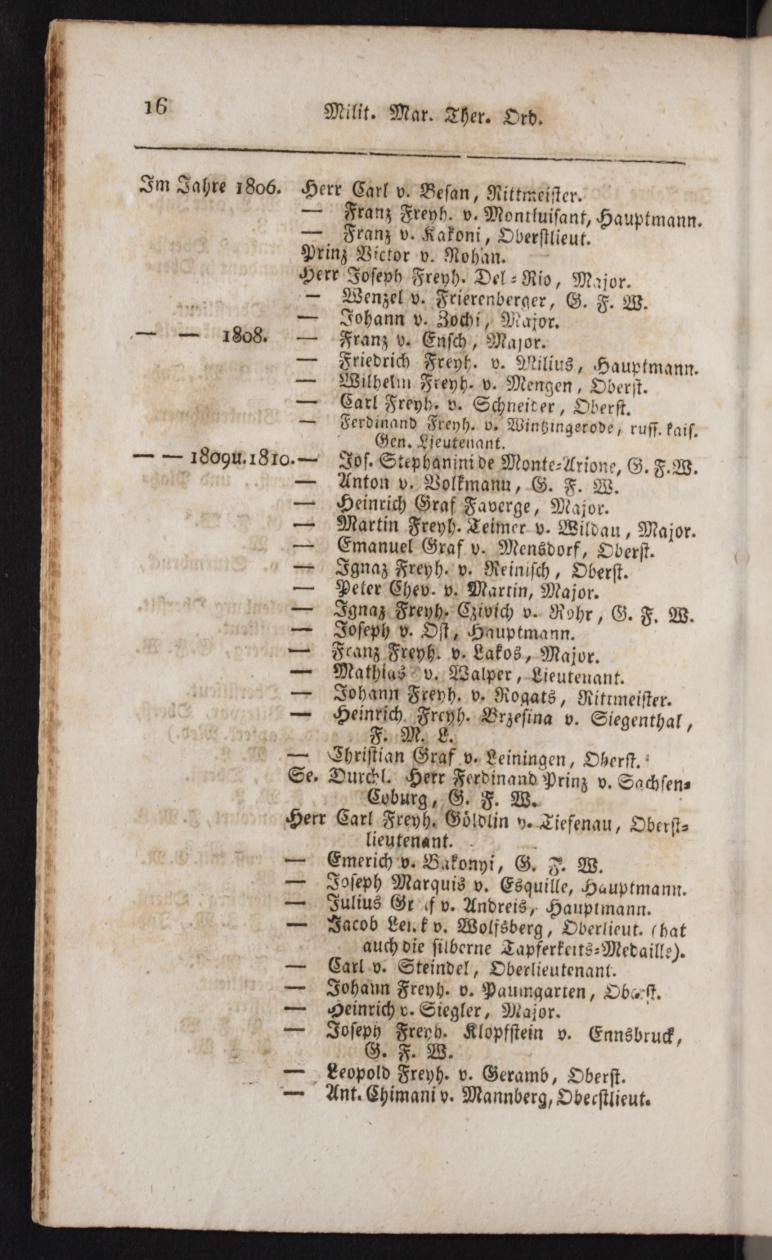 16
Milit. Mar. Ther. Ord.
Im Jahre 1806. Herr Carl v. Besan, Rittmeister.
— Franz Freyh. v. Montluisant, Hauptmann.
— Franz v. Kakoni, Oberstlieut.
Prinz Victor v. Rohan.
Herr Joseph Freyh. Del-Rio, Major.
— Wenzel v. Frierenberger, G. F. W.
— Johann v. Zochi, Major.
— — 1808. — Franz v. Ensch, Major.
— Friedrich Freyh. v. Milius, Hauptmann.
— Wilhelm Freyh. v. Mengen, Oberst.
— Carl Freyh. v. Schneider, Oberst.
— Ferdinand Freyh. v. Wintzingerode, russ. kais.
Gen. Lieutenant.
— — 1809u.1810. — Jos. Stephanini de Monte-Arione, G. F. W.
— Anton v. Volkmann, G. F. W.
— Heinrich Graf Faverge, Major.
— Martin Freyh. Teimer v. Wildau, Major.
— Emanuel Graf v. Mensdorf, Oberst.
— Ignaz Freyh. v. Reinisch, Oberst.
— Peter Chev. v. Martin, Major.
— Ignaz Freyh. Czivich v. Rohr, G. F. W.
— Joseph v. Ost, Hauptmann.
— Franz Freyh. v. Lakos, Major.
— Mathias v. Walper, Lieutenant.
— Johann Freyh. v. Rogats, Rittmeister.
— Heinrich Freyh. Brzesina v. Siegenthal,
F. M. L.
— Christian Graf v. Leiningen, Oberst.
Se. Durchl. Herr Ferdinand Prinz v. Sachsen-
Coburg, G. F. W.
Herr Carl Freyh. Göldlin v. Tiefenau, Oberst-
lieutenant.
— Emerich v. Bakonyi, G. F. W.
— Joseph Marquis v. Esquille, Hauptmann.
— Julius Graf v. Andreis, Hauptmann.
— Jacob Lenk v. Wolfsberg, Oberlieut. (hat
auch die silberne Tapferkeits-Medaille).
— Carl v. Steindel, Oberlieutenant.
— Johann Freyh. v. Paumgarten, Oberst.
— Heinrich v. Siegler, Major.
— Joseph Freyh. Klopfstein v. Ennsbruck,
G. F. W.
— Leopold Freyh. v. Geramb, Oberst.
— Ant. Chimani v. Mannberg, Oberstlieut.